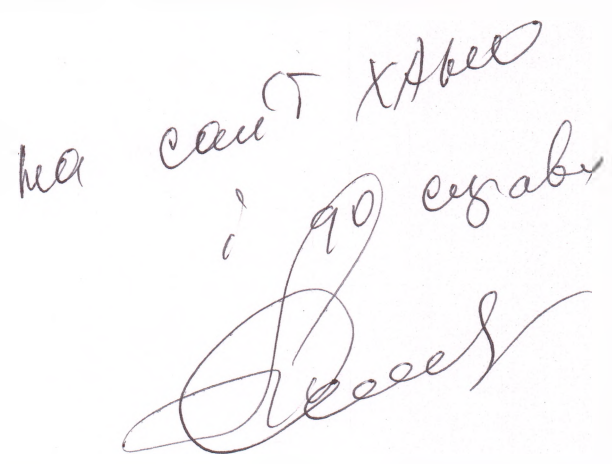 на сайт ХАНО
і до справи